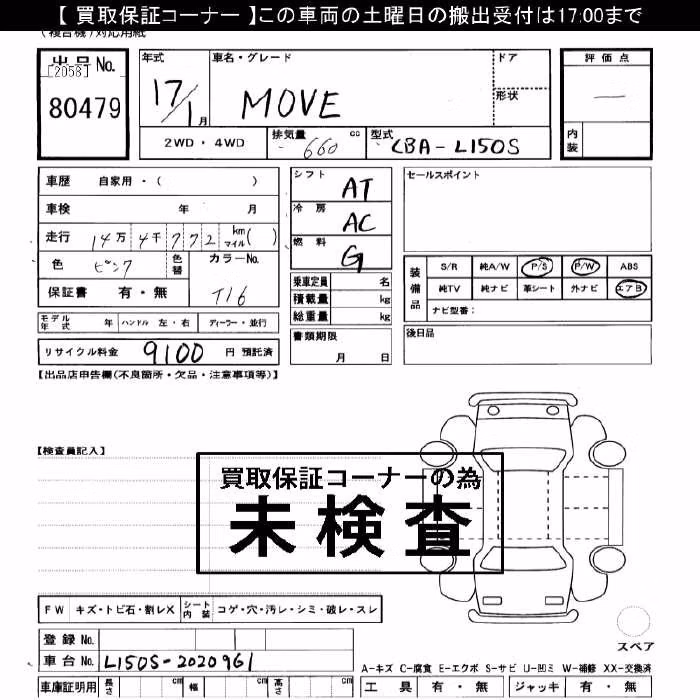 【 買取保証コーナー 】この車両の土曜日の搬出受付は17:00まで
(複合機)対応用紙
出品No. [2058] 80479
年式 17/1月
車名・グレード MOVE
ドア
形状
評価点 —
内装
2WD・4WD
排気量 660 cc
型式 CBA-L150S
車歴 自家用・( )
車検 年 月
走行 14万4千772 km マイル( )
色 ピンク 色替 カラーNo. T16
保証書 有・無
シフト AT
冷房 AC
燃料 G
乗車定員 名
積載量 kg
総重量 kg
セールスポイント
装備品
S/R 純A/W P/S P/W ABS
純TV 純ナビ 革シート 外ナビ エアB
ナビ型番:
モデル年式 年 ハンドル 左・右 ディーラー・並行
リサイクル料金 9100 円 預託済
書類期限 月 日
後日品
【出品店申告欄(不良箇所・欠品・注意事項等)】
【検査員記入】
買取保証コーナーの為
未検査
FW キズ・トビ石・割レX シート内装 コゲ・穴・汚レ・シミ・破レ・スレ
スペア
登録No.
車台No. L150S-2020961
A-キズ C-腐食 E-エクボ S-サビ U-凹ミ W-補修 XX-交換済
車庫証明用 長さ cm 幅 cm 高さ cm
工具 有・無 ジャッキ 有・無